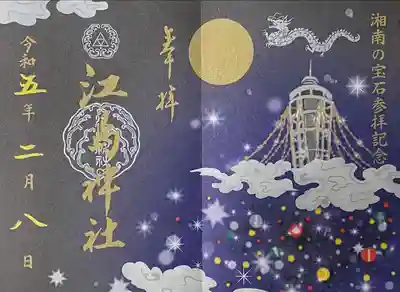 湘南の宝石参拝記念
奉拝
江島神社
令和五年二月八日